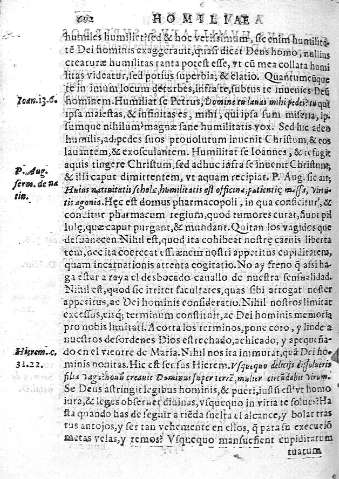 692 HOMILIAE
humiles humilitet & hoc verissimum, se enim humilitá
té Dei hominis exaggerauit, quasi dicat Deus homo, nullius
creaturæ humilitas tanta potest esse, vt cũ mea collata humi
litas videatur, sed potius superbia, & elatio. Quantumcũque
te in imum locum deturbes, infra te, subtus te inuenies Deũ
hominem. Humiliat se Petrus, Domine tu lauas mihi pedes? tu qui
Ioan. 13. 6.
ipsa maiestas, & infinitas es, mihi, qui ipsa sum miseria, ip-
sumque nihilum? magnæ sane humilitatis vox. Sed hic adeo
humilis, ad pedes suos prouolutum inuenit Christum, & eos
lauantem, & exosculantem. Humiliat se Ioannes, & refugit
aquis tingere Christum, sed adhuc infra se inuenit Christum,
& illi caput dimittentem, vt aquam recipiat. P. Aug. sic ait:
P. Aug.
serm. de na
tiu.
Huius natiuitatis schola, humilitatis est officina, patientiæ messa, Virtu-
tis agonia. Hęc est domus pharmacopoli, in qua conscitur, &
conficitur pharmacum regium, quod tumores curat, sunt pil
lulę, quæ caput purgant, & mundant. Quitan los vagidos que
desuanecen. Nihil est, quod ita cohibeat nostrę carnis liberta
tem, nec ita coerceat effrænem nostri appetitus cupiditatem,
quam incarnationis attenta cogitatio. No ay freno q̃ assi ha-
ga estar a raya el desbocado cauallo de nuestra sensualidad.
Nihil est, quod sic irritet facultates, quas sibi arrogat noster
appetitus, ac Dei hominis consideratio. Nihil nostros limitat
excessus, eisq; terminum constituit, ac Dei hominis memoria
pro nobis limitati. Acotta los terminos, pone coro, y linde a
nuestros desordenes Dios estrechado, achicado, y apequeña-
do en el vientre de Maria. Nihil nos ita immutat, quá Dei ho-
minis nouitas. Hic est sensus Hierem. Vsquequo delicijs dissolueris
Hierem. c.
31. 22.
filia vaga? nouũ creauit Dominus super terrã, mulier circũdabit virum.
Se Deus astringit legibus hominis, & pueri, iussis est? vt homo
iura, & leges obseruet diuinas, vsquequo in vitia te solues? Ha
sta quando has de seguir a riẽda suelta el alcance, y bolar tras
tus antojos, y ser tan vehemente en ellos, q̃ para su execució
metas velas, y remos? Vsquequo mansuescent cupiditatum
tuatum